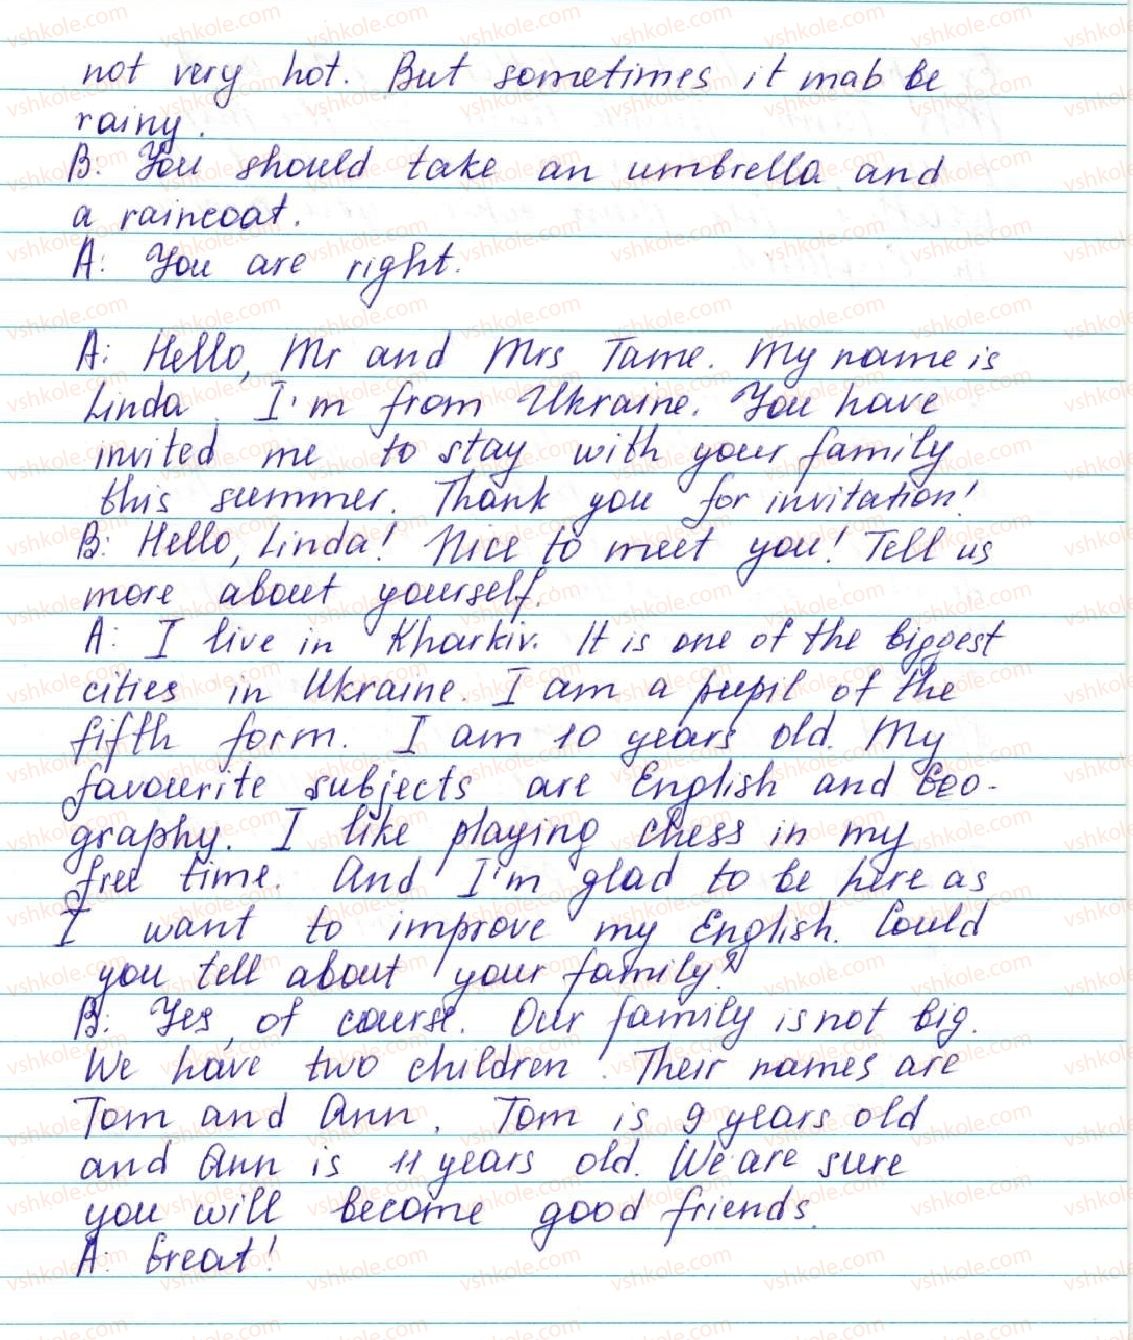 not very hot. But sometimes it mab be
rainy.
B: You should take an umbrella and
a raincoat.
A: You are right.
A: Hello, Mr and Mrs Tame. My name is
Linda. I'm from Ukraine. You have
invited me to stay with your family
this summer. Thank you for invitation!
B: Hello, Linda! Nice to meet you! Tell us
more about yourself.
A: I live in Kharkiv. It is one of the biggest
cities in Ukraine. I am a pupil of the
fifth form. I am 10 years old. My
favourite subjects are English and Geo-
graphy. I like playing chess in my
free time. And I'm glad to be here as
I want to improve my English. Could
you tell about your family?
B: Yes, of course. Our family is not big.
We have two children. Their names are
Tom and Ann. Tom is 9 years old
and Ann is 11 years old. We are sure
you will become good friends.
A: Great!
vshkole.com